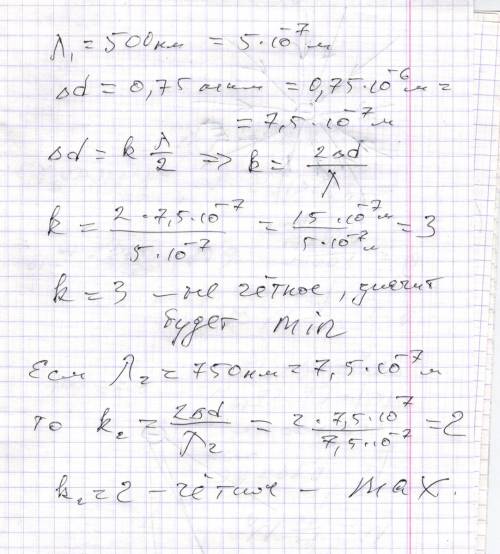 λ₁ = 500нм = 5·10⁻⁷м
Δd = 0,75 мкм = 0,75·10⁻⁶м =
= 7,5·10⁻⁷м
Δd = k λ/2 => k = 2Δd/λ
k = 2·7,5·10⁻⁷/5·10⁻⁷ = 15·10⁻⁷м/5·10⁻⁷м = 3
k = 3 – не чётное, значит
будет min
Если λ₂ = 750нм = 7,5·10⁻⁷м
то k₂ = 2Δd/λ₂ = 2·7,5·10⁻⁷/7,5·10⁻⁷ = 2
k₂ = 2 – чётное – max.